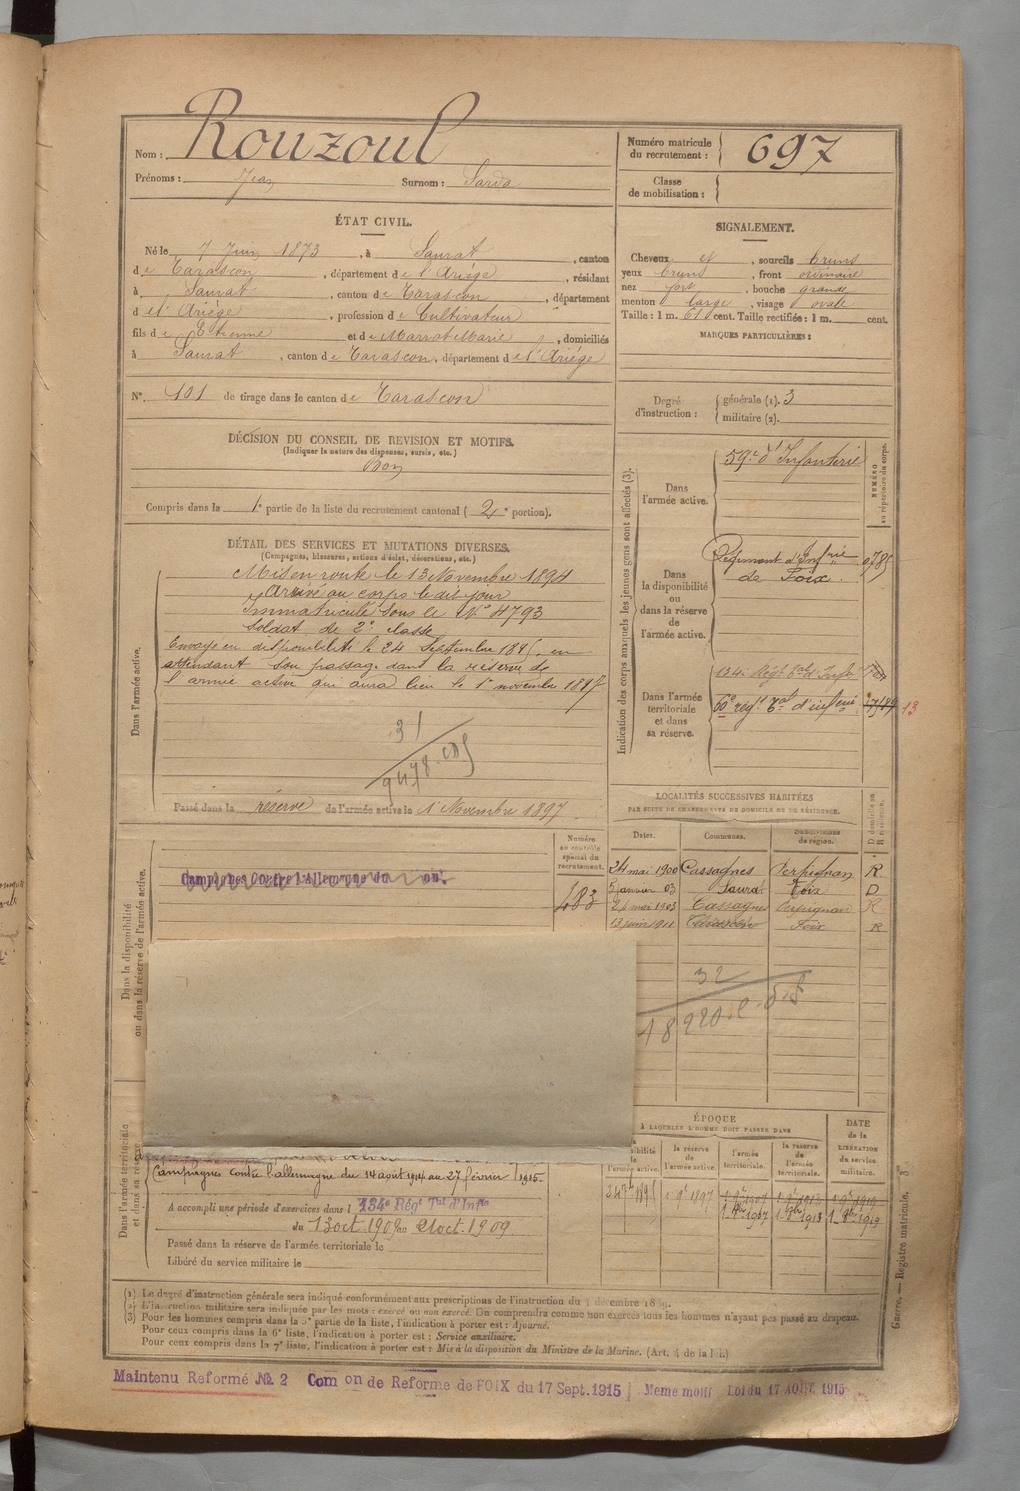 Nom : Rouzoul
Prénoms : Jean Surnom : Sarda
ÉTAT CIVIL.
Né le 7 Juin 1873, à Saurat, canton
de Tarascon, département de l'Ariège, résidant
à Saurat, canton de Tarascon, département
de l'Ariège, profession de Cultivateur
fils de Etienne et de Marrot Marie, domiciliés
à Saurat, canton de Tarascon, département de l'Ariège
N° 101 de tirage dans le canton de Tarascon
DÉCISION DU CONSEIL DE REVISION ET MOTIFS.
(Indiquer la nature des dispenses, sursis, etc.)
Bon
Compris dans la 1e partie de la liste du recrutement cantonal (2e portion).
DÉTAIL DES SERVICES ET MUTATIONS DIVERSES.
(Campagnes, blessures, actions d'éclat, décorations, etc.)
Dans l'armée active.
Mis en route le 13 Novembre 1894
Arrivé au corps le dit jour
Immatriculé sous le N° 4793
Soldat de 2e classe
Envoyé en disponibilité le 24 Septembre 1895, en
attendant son passage dans la réserve de
l'armée active qui aura lieu le 1er novembre 1897
31
Passé dans la réserve de l'armée active le 1 Novembre 1897
Dans la disponibilité
ou dans la réserve de l'armée active.
Numéro
au contrôle
spécial du
recrutement.
Campagnes Contre l'Allemagne du au
483
Dans l'armée territoriale
et dans sa réserve
Campagnes contre l'allemagne du 14 août 1914 au 27 février 1915.
A accompli une période d'exercices dans l 134e Régt Tal d'Infie
du 13 oct. 1909 au 21 oct. 1909
Passé dans la réserve de l'armée territoriale le
Libéré du service militaire le
Numéro matricule
du recrutement : 697
Classe
de mobilisation :
SIGNALEMENT.
Cheveux et, sourcils bruns
yeux bruns, front ordinaire
nez fort, bouche grande
menton large, visage ovale
Taille : 1 m. 61 cent. Taille rectifiée : 1 m. cent.
MARQUES PARTICULIÈRES :
Degré
d'instruction :
générale (1). 3
militaire (2).
Indication des corps auxquels les jeunes gens sont affectés (3).
NUMÉRO
au répertoire du corps.
Dans
l'armée active.
59e d'Infanterie
Dans
la disponibilité
ou
dans la réserve
de
l'armée active.
Régiment d'Infrie
de Foix.
Dans l'armée
territoriale
et dans
sa réserve.
134e Régt Tal d'Infie
60e régt Tal d'infie
13
LOCALITÉS SUCCESSIVES HABITÉES
PAR SUITE DE CHANGEMENTS DE DOMICILE OU DE RÉSIDENCE.
Dates. Communes. Subdivisions de région. D domicile ou R résidence.
24 mai 1900 Cassagnes Perpignan R
5 janvier 03 Saurat Foix D
24 mai 1903 Cassagnes Perpignan R
13 juin 1911 Tarascon Foix R
32
ÉPOQUE
À LAQUELLE L'HOMME DOIT PASSER DANS
la réserve
de
l'armée active.
l'armée
territoriale.
la réserve
de
l'armée
territoriale.
DATE
de la
LIBÉRATION
du service
militaire.
24 7bre 1895 1 9bre 1897 1 9bre 1907 1 9bre 1913 1 9bre 1919
1 8bre 1907 1 8bre 1913 1 8bre 1919
(1) Le degré d'instruction générale sera indiqué conformément aux prescriptions de l'instruction du 4 décembre 1889.
(2) L'instruction militaire sera indiquée par les mots : exercé ou non exercé. On comprendra comme non exercés tous les hommes n'ayant pas passé au drapeau.
(3) Pour les hommes compris dans la 5e partie de la liste, l'indication à porter est : Ajourné.
Pour ceux compris dans la 6e liste, l'indication à porter est : Service auxiliaire.
Pour ceux compris dans la 7e liste, l'indication à porter est : Mis à la disposition du Ministre de la Marine. (Art. 4 de la loi.)
Guerre. — Registre matricule.
Maintenu Reformé No 2 Comon de Reforme de FOIX du 17 Sept. 1915 Meme motif Loi du 17 AOUT 1915